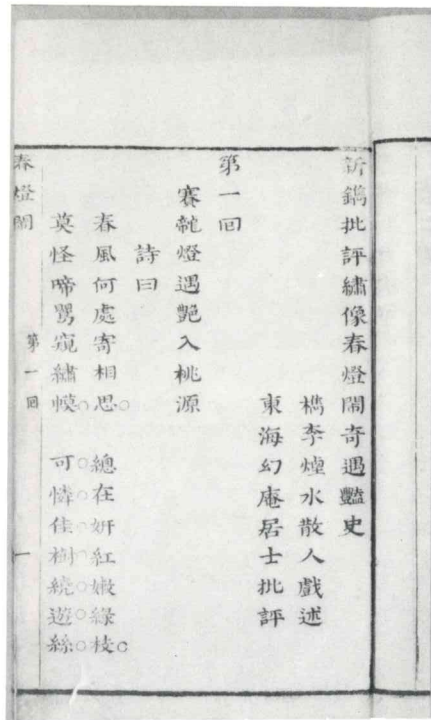 新鐫批評繡像春燈閙奇遇豔史
檇李煙水散人戲述
東海幻庵居士批評
第一回
賽龍燈遇艷入桃源
詩曰
春風何處寄相思 總在妍紅嫩綠枝
莫怪啼鶯窺繡幙 可憐佳樹繞遊絲
春燈閙 第一回 一